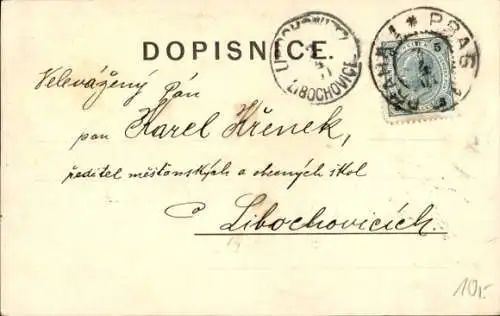 DOPISNICE.
LIBOCHOVICE
PRAG
PRAHA 1
5
Velevážený Pán
pan Karel Křenek,
ředitel měšťanských a obecných škol
Libochovicích.
10,-